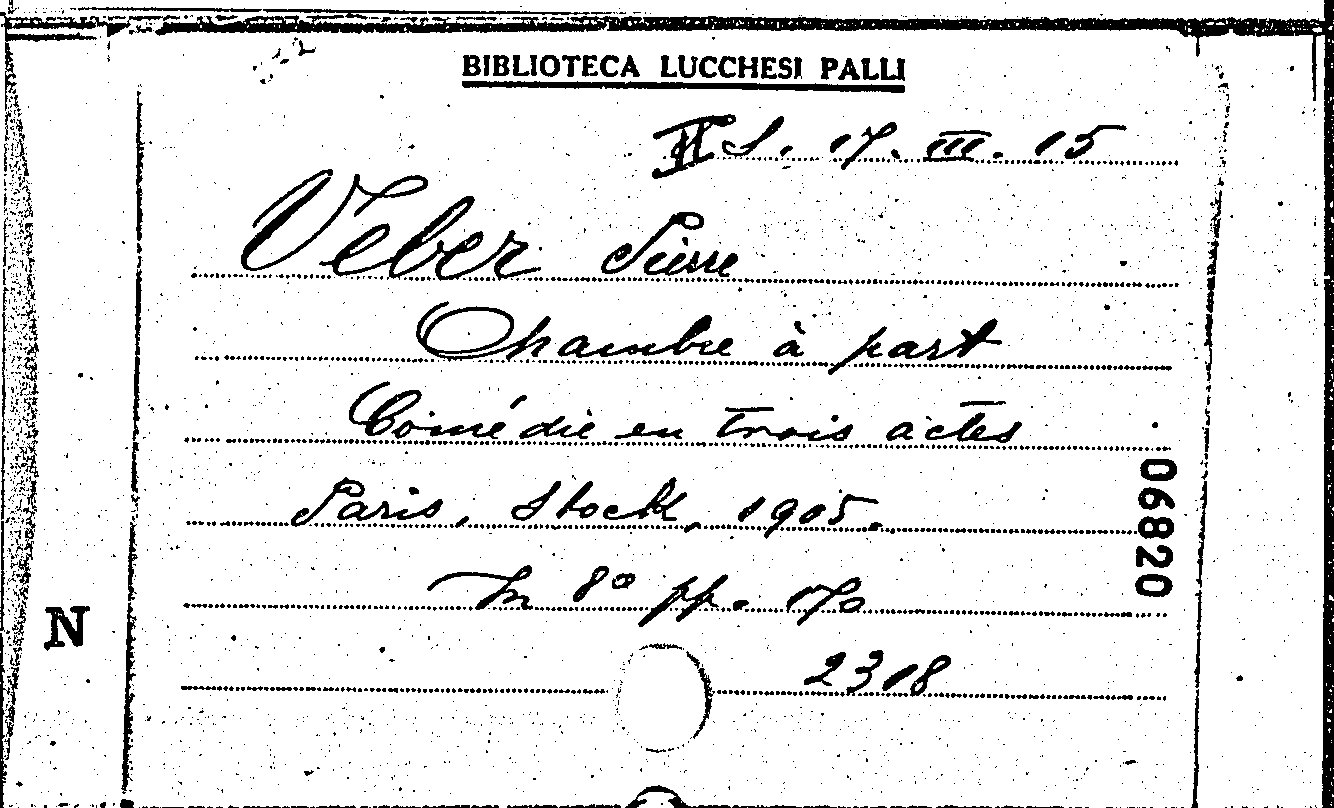 BIBLIOTECA LUCCHESI PALLI
II S. 17. III. 15
Veber Pierre
Chambre à part
Comédie en trois actes
Paris, Stock, 1905.
In 8° pp. 170
2318
06820
N